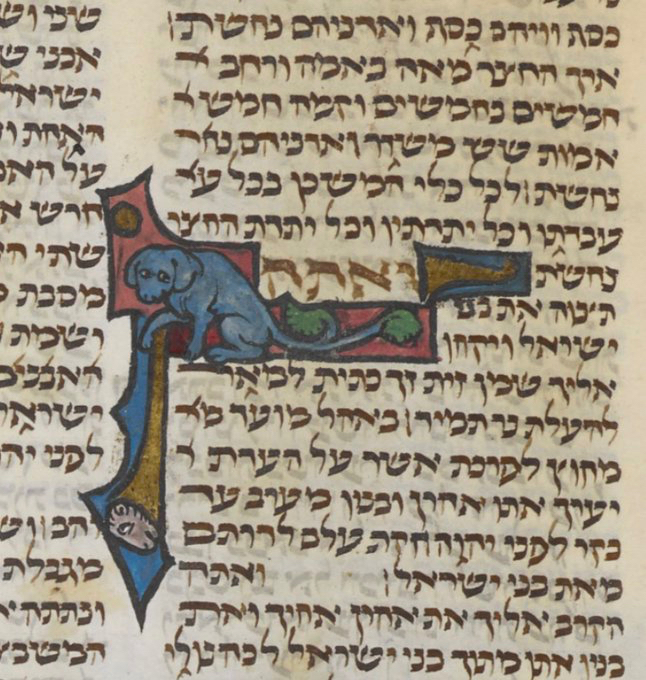 כסף וויהם כסף ואדניהם נחשת
ארך החצר מאה באמה ורחב
חמשים בחמשים וקמה חמש
אמות שש משזר ואדניהם
נחשת לכל כלי המשכן בכל
עבדתו וכל יתדתיו וכל יתדת החצר
נחשת ואתה
תצוה את בני
ישראל ויקחו
אליך שמן זית זך כתית למאור
להעלת נר תמיד באהל מועד
מחוץ לפרכת אשר על העדת
יערך אתו אהרן ובניו מערב עד
בקר לפני יהוה חקת עולם לדרתם
מאת בני ישראל ואתה
הקרב אליך את אהרן אחיך ואת
בניו אתו מתוך בני ישראל לכהנו לי
שני
אבני
ישראל
האחת
על
חרש
שתי
מסבת
ושמת
האבנים
ישראל
לפני
זהב
מגבלת
ונתתה